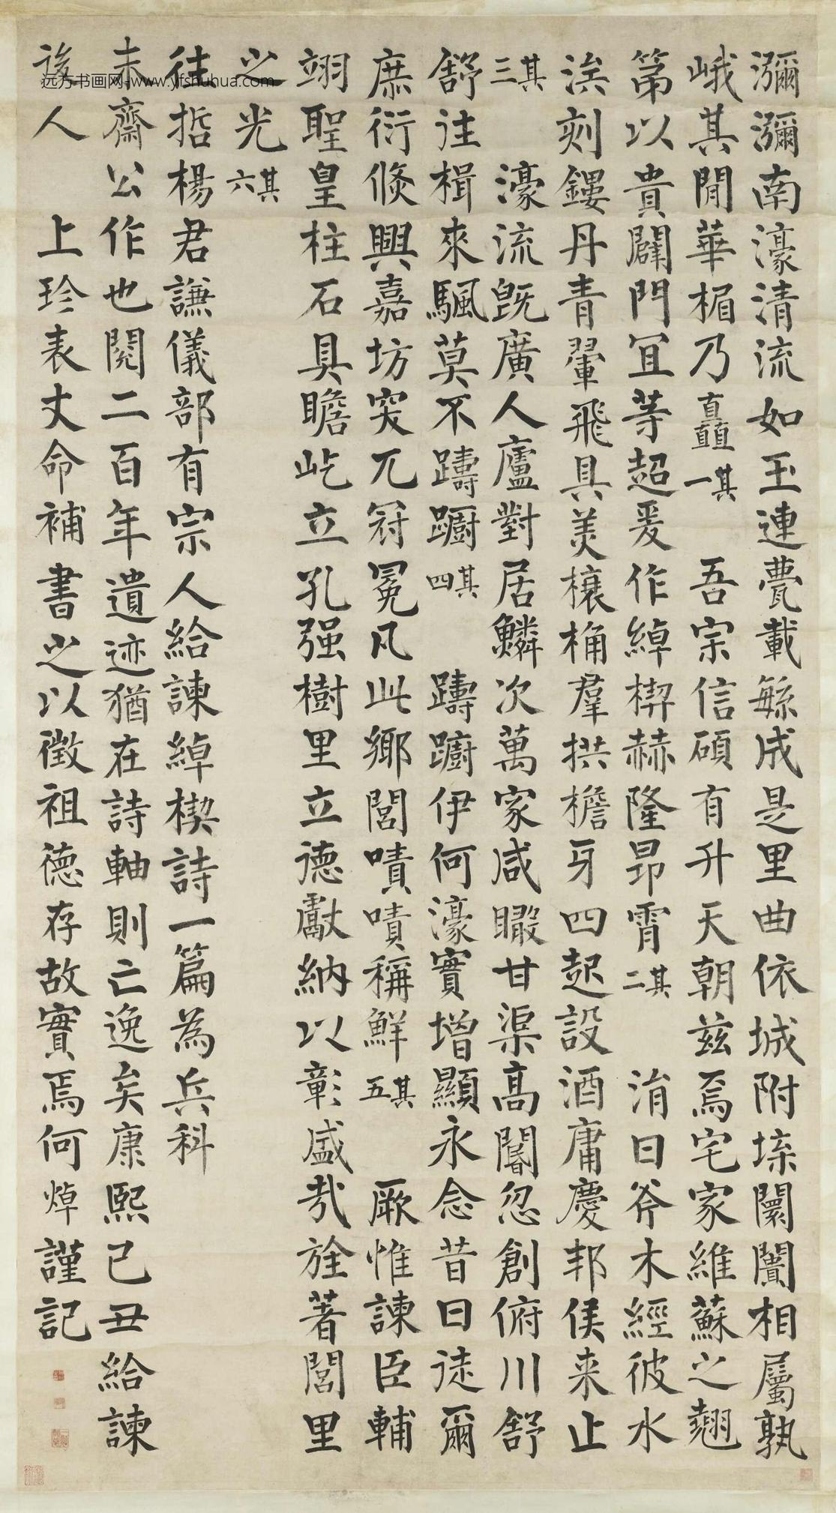 瀰瀰南濠清流如玉連甍載繇成是里曲依城附埭闤闠相屬孰
峨其閈華楣乃矗其一 吾宗信碩有升天朝兹焉宅家維蘇之翹
第以貴闢門宜等超爰作綽楔赫隆昂霄其二 涓日斧木經彼水
涘刻鏤丹青翬飛具美欀桷羣拱檐牙四起設酒庸慶邦侯来止
其三 濠流既廣人廬對居鱗次萬家咸瞰甘渠高闈忽創俯川舒
舒往楫來颿莫不躊躕其四 躊躕伊何濠實增顯永念昔日徒爾
庶衍倏興嘉坊突兀冠冕凡此鄉閭嘖嘖稱鮮其五 厥惟諫臣輔
翊聖皇柱石具瞻屹立孔强樹里立德獻納以彰盛哉旌著閭里
之光其六
往哲楊君謙儀部有宗人給諫綽楔詩一篇為兵科
未齋公作也閱二百年遺迹猶在詩軸則亡逸矣康熙己丑給諫
後人 上珍表丈命補書之以徵祖德存故實焉何焯謹記
远方书画网-www.yfshuhua.com